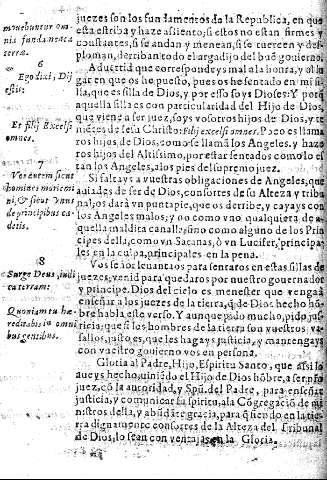 mouebuntur om
nia fundamenta
terræ.
6
Ego dixi, Dij
estis:
Et filij Excelsi
omnes.
7
Vos autem sicut
homines moriemi
ni, & sicut vnus
de principibus ca
detis.
8
Surge Deus, iudi
ca terram:
Quoniam tu hæ
reditabis in omni
bus gentibus.
juezes son los fundamentos de la Republica, en que
esta estriba y haze assiento; si estos no estan firmes y
constantes, si se andan y menean, si se tuercen y des
ploman, derriban todo el argadijo del buē gouierno.
Aduertid que correspondeys mal a la honra, y al lu
gar en que os he puesto, pues os he sentado en mi si
lla, que es silla de Dios, y por esso soys Dioses: Y porq̄
aquella silla es con particularidad del Hijo de Dios,
que viene a ser juez, soys vosotros hijos de Dios, y te
nientes de Iesu Christo: Filij excelsi omnes. Poco es llama
ros hijos de Dios, como se llamā los Angeles, y hazo
ros hijos del Altissimo, por estar sentados como lo es
tan los Angeles, a los pies del supremo juez.
Si faltays a vuestras obligaciones de Angeles, que
auiades de ser de Dios, consortes de su Alteza y tribu
nal; os dará vn puntapie, que os derribe, y cayays con
los Angeles malos; y no como vno qualquiera de a-
quella maldita canalla; sino como alguno de los Prin
cipes della, como vn Satanas, ò vn Lucifer, principa-
les en la culpa, principales en la pena.
Vos señor leuantaos para sentaros en estas sillas de
juezes, venid para quedaros por nuestro gouernador
y principe. Dios del cielo es menester que venga à
enseñar a los juezes de la tierra, q̄ de Dios hecho hō
bre habla este verso. Y aunque pido mucho, pido jus
ticia; que si los hombres de la tierra son vuestros va-
sallos, justo es, que les hagays justicia, y mantengays
con vuestro gouierno vos en persona.
Gloria al Padre, Hijo, Espiritu Santo, que assi lo
aueys hecho, uiniēdo el Hijo de Dios hōbre, a ser nr̄o
juez, cō la autoridad, y Spū. del Padre, para enseñar
justicia, y comunicar su spiritu, a la Cōgregaciō de mi
nistros della, y abūdāte gracia, para q̄ siendo en la tie
rra dignamente consortes de la Alteza del Tribunal
de Dios, lo sean con ventajas en la Gloria.